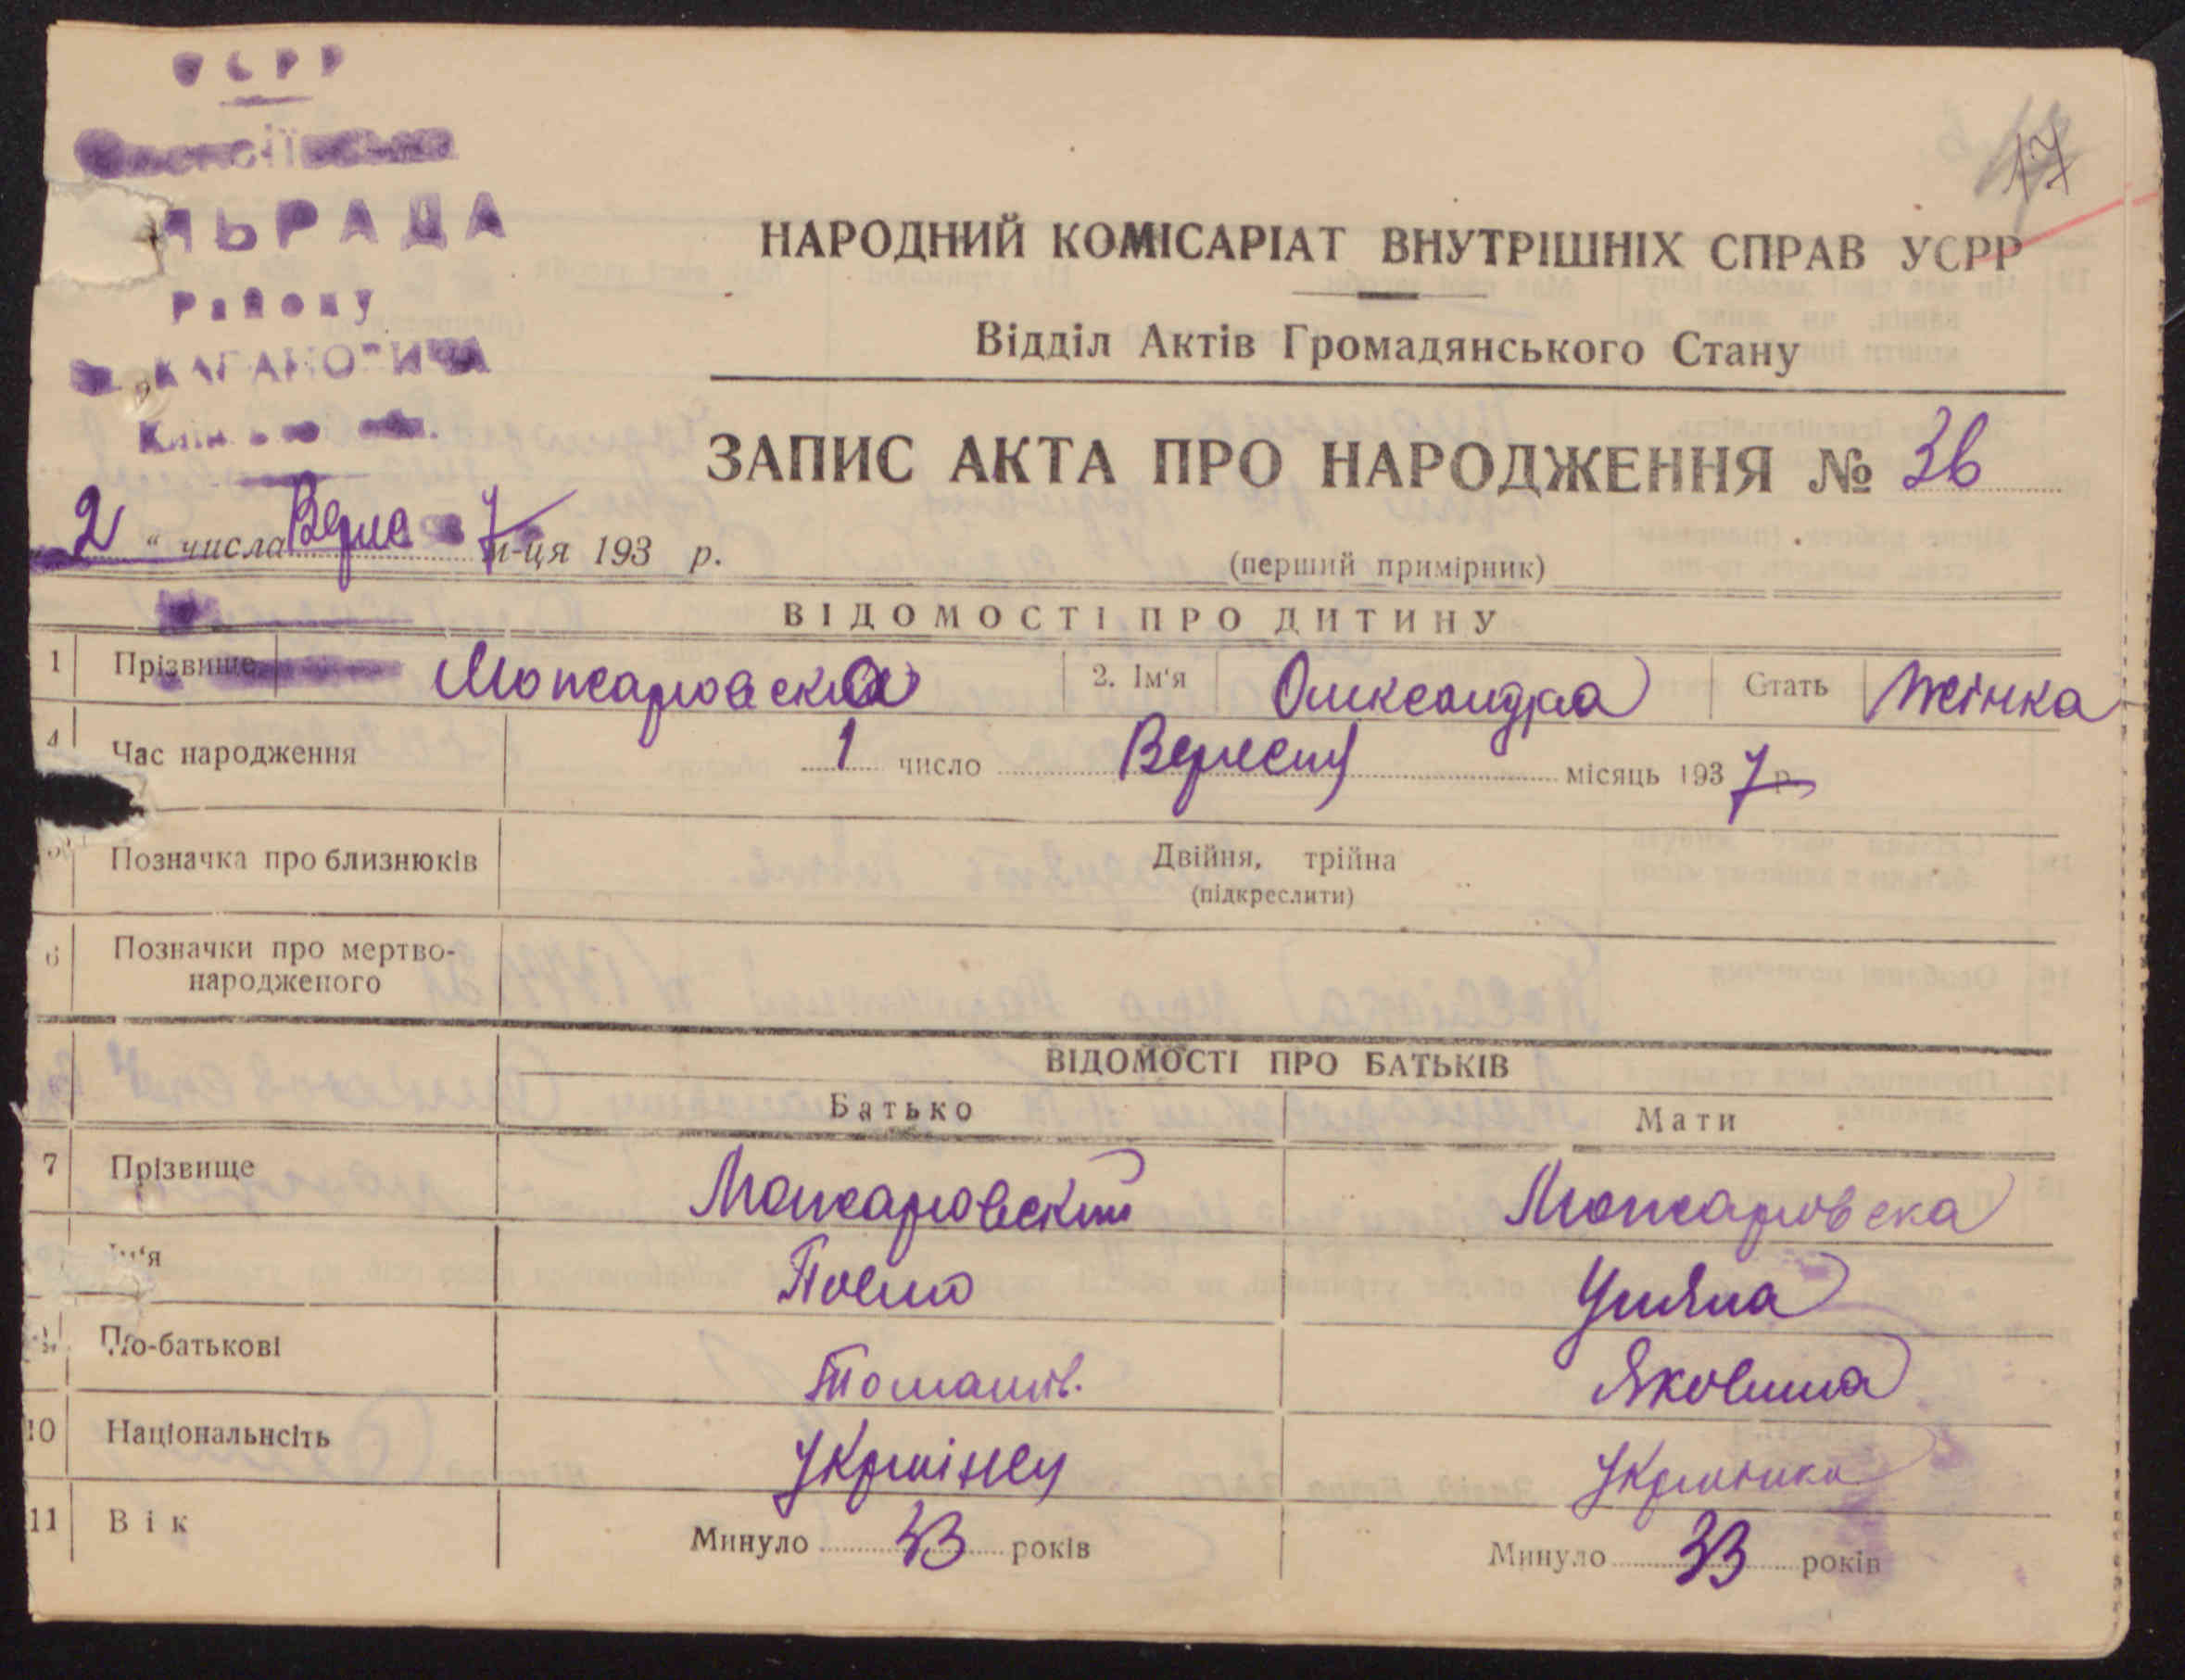 УСРР
ЛЬРАДА
Району
КАГАНОВИЧА
17
НАРОДНИЙ КОМІСАРІАТ ВНУТРІШНІХ СПРАВ УСРР
Відділ Актів Громадянського Стану
ЗАПИС АКТА ПРО НАРОДЖЕННЯ № 36
2 " числа Верес 7 м-ця 193 р.
(перший примірник)
ВІДОМОСТІ ПРО ДИТИНУ
1 Прізвище Можаровска 2. Ім'я Олександра Стать Жінка
4 Час народження 1 число Вересня місяць 1937 р.
5 Позначка про близнюків Двійня, трійна
(підкреслити)
6 Позначки про мертво-
народженого
ВІДОМОСТІ ПРО БАТЬКІВ
Батько Мати
7 Прізвище Можаровский Можаровска
Ім'я Уляна
По-батькові Томашів. Яковлина
10 Національнсіть Українец Українка
11 Вік Минуло 43 років Минуло 33 років